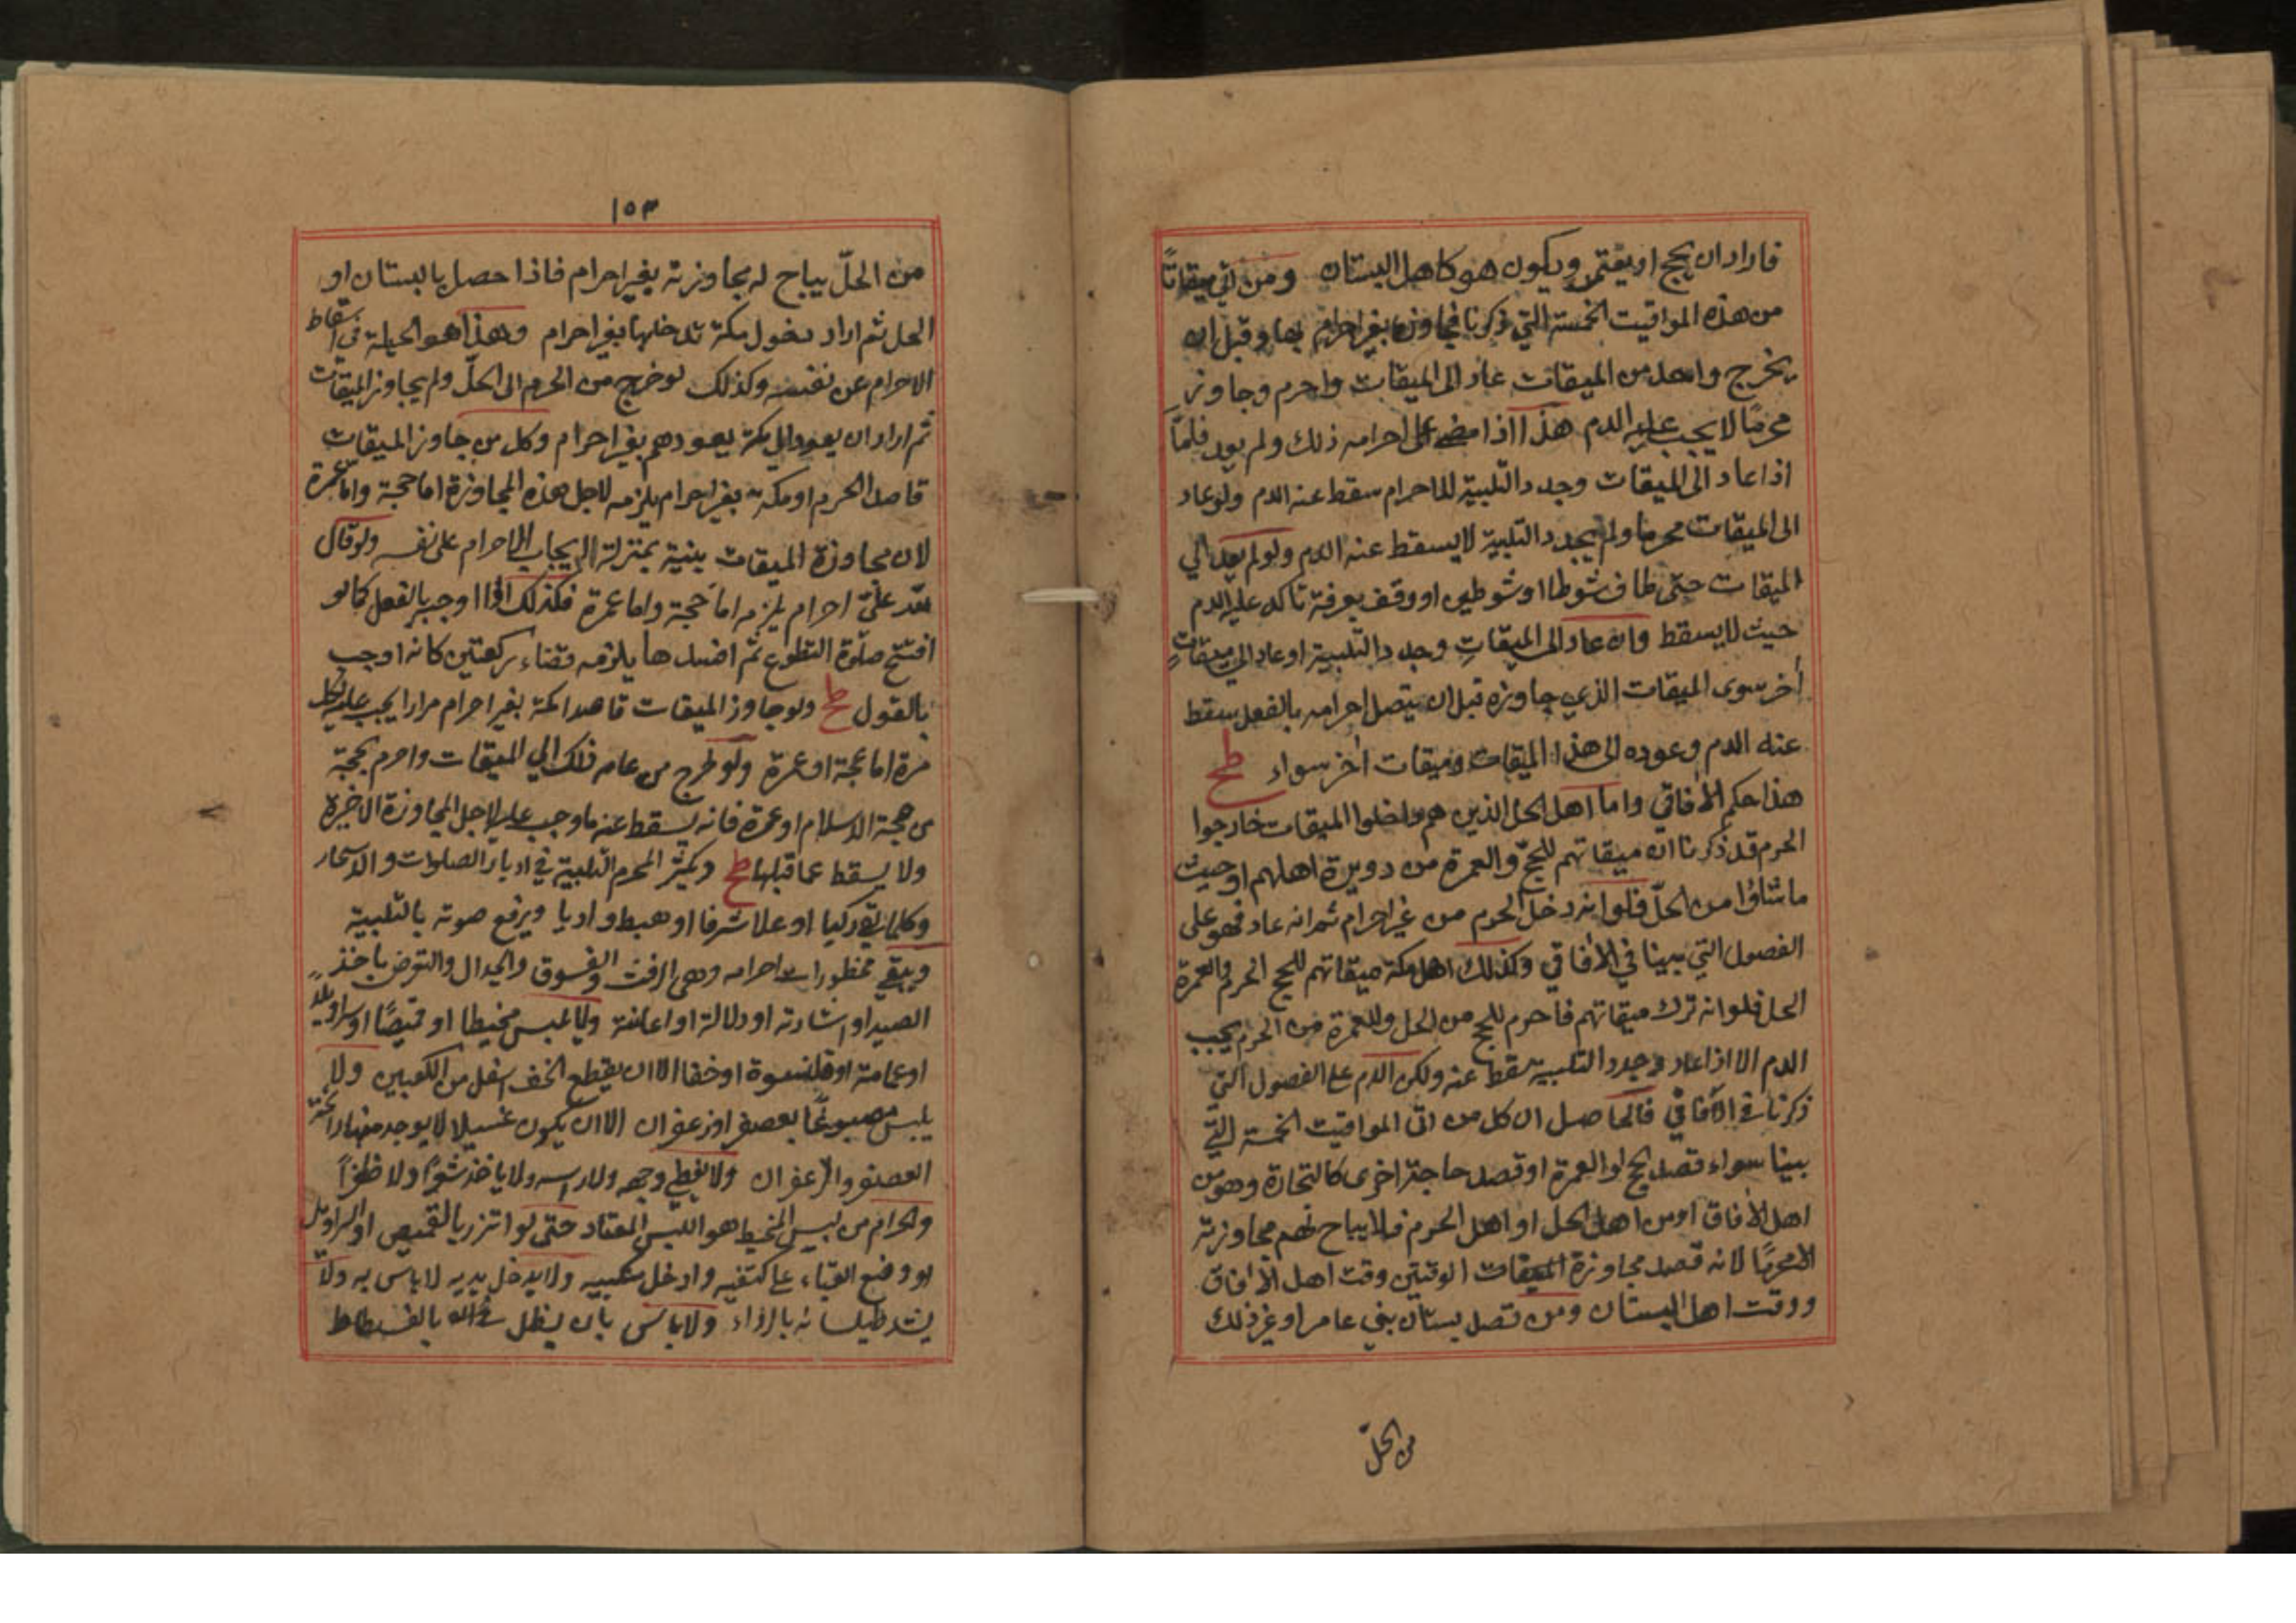 فاراد ان يحج او يعتمر ويكون هو كاهل البستان ومن اتي ميقاتًا
من هذه المواقيت الخمسة التي ذكرنا فجاوزها بغير احرام بها وقبل ان
يخرج واهل من الميقات عاد الى الميقات واحرم وجاوز
محرمًا لا يجب عليه الدم هذا اذا مضى على احرامه ذلك ولم يعد فامّا
اذا عاد الى الميقات وجدد التلبية للاحرام سقط عنه الدم ولو عاد
الى الميقات محرما ولم يجدد التلبية لا يسقط عنه الدم ولو لم يعد الي
الميقات حتى طاف شوطا او شوطين او وقف بعرفة تاكد عليه الدم
حيث لا يسقط وان عاد الى الميقاتِ وجدد التلبية او عاد الى ميقاتٍ
أخر سوى الميقات الذي جاوزه قبل ان يتصل احرامه بالفعل سقط
عنه الدم وعوده الى هذا الميقات وميقات اخر سواء طح
هذا حكم الآفاقي واما اهل الحل الذين هم داخلوا الميقات خارجوا
الحرم قد ذكرنا ان ميقاتهم للحجّ والعمرة من دويرة اهلهم او حيث
ما شاؤا من الحلّ فلو انه دخل الحرم من غير احرام ثم انه عاد فهو على
الفصول التي بينا في الآفاقي وكذلك اهل مكة ميقاتهم للحج الحرم والعمرة
الحل فلو انه ترك ميقاتهم فاحرم للحج من الحل وللعمرة من الحرم يجب
الدم الا اذا عاد وجدد التلبية سقط عنه ولكن الدم على الفصول التي
ذكرنا في الآفاقي فالحاصل ان كل من اتى المواقيت الخمسة التي
بينا سواء قصد الحج او العمرة او قصد حاجة اخرى كالتجارة وهو من
اهل الآفاق او من اهل الحل او اهل الحرم فلا يباح لهم مجاوزته
الا محرمًا لانه قصد مجاوزة الميقات الوقتين وقت اهل الآفاق
ووقت اهل البستان ومن قصد بستان بني عامر او غير ذلك
من الحلّ
١٥٣
من الحلّ يباح له مجاوزته بغير احرام فاذا حصل بالبستان او
الحل ثم اراد دخول مكة يدخلها بغير احرام وهذا هو الحيلة في اسقاط
الاحرام عن نفسه وكذلك لو خرج من الحرم الى الحلّ ولم يجاوز الميقات
ثم اراد ان يعود الي مكة يعود هم بغير احرام وكل من جاوز الميقات
قاصد الحرم او مكة بغير احرام يلزمه لاجل هذه المجاوزة اما حجة واما عمرة
لان مجاوزة الميقات بنية بمنزلة الايجاب الاحرام على نفسه ولو قال
لله علىّ احرام يلزمه اما حجة واما عمرة فكذلك اذا اوجب بالفعل كما لو
افتتح صلوة التطوع ثم افسدها يلزمه قضاء ركعتين كانه اوجب
بالقول طح ولو جاوز الميقات قاصدا مكة بغير احرام مرارا يجب عليه لكل
مرة اما حجة او عمرة ولو خرج من عامه ذلك الي الميقات واحرم بحجة
من حجة الاسلام او عمرة فانه يسقط عنه ما وجب عليه لاجل المجاوزة الاخيرة
ولا يسقط عما قبلها طح ويكثر المحرم التلبية في ادبار الصلوات والاسحار
وكلما لقي ركبا او علا شرفا او هبط واديا ويرفع صوته بالتلبية
ويتقي محظورات احرامه وهى الرفث والفسوق والجدال والتعرض باخذ
الصيد او اشارته او دلالة او اعانة ولا يلبس مخيطا او قميصًا او سراويلًا
او عمامة او قلنسوة او خفا الا ان يقطع الخف اسفل من الكعبين ولا
يلبس مصبوغًا بعصفر او زعفران الا ان يكون غسيلا لا يوجد منه رائحة
العصفر والزعفران ولا يغطي وجهه ولا راسه ولا ياخذ شعرًا ولا ظفرًا
والحرام من لبس المخيط هو اللبس المعتاد حتى لو اتزر بالقميص او السراويل
او وضع القباء على كتفيه وادخل منكبيه ولا يدخل يديه لا باس به ولا
يشد طيلسانه بازراء ولا باس بان يظل بالفسطاط